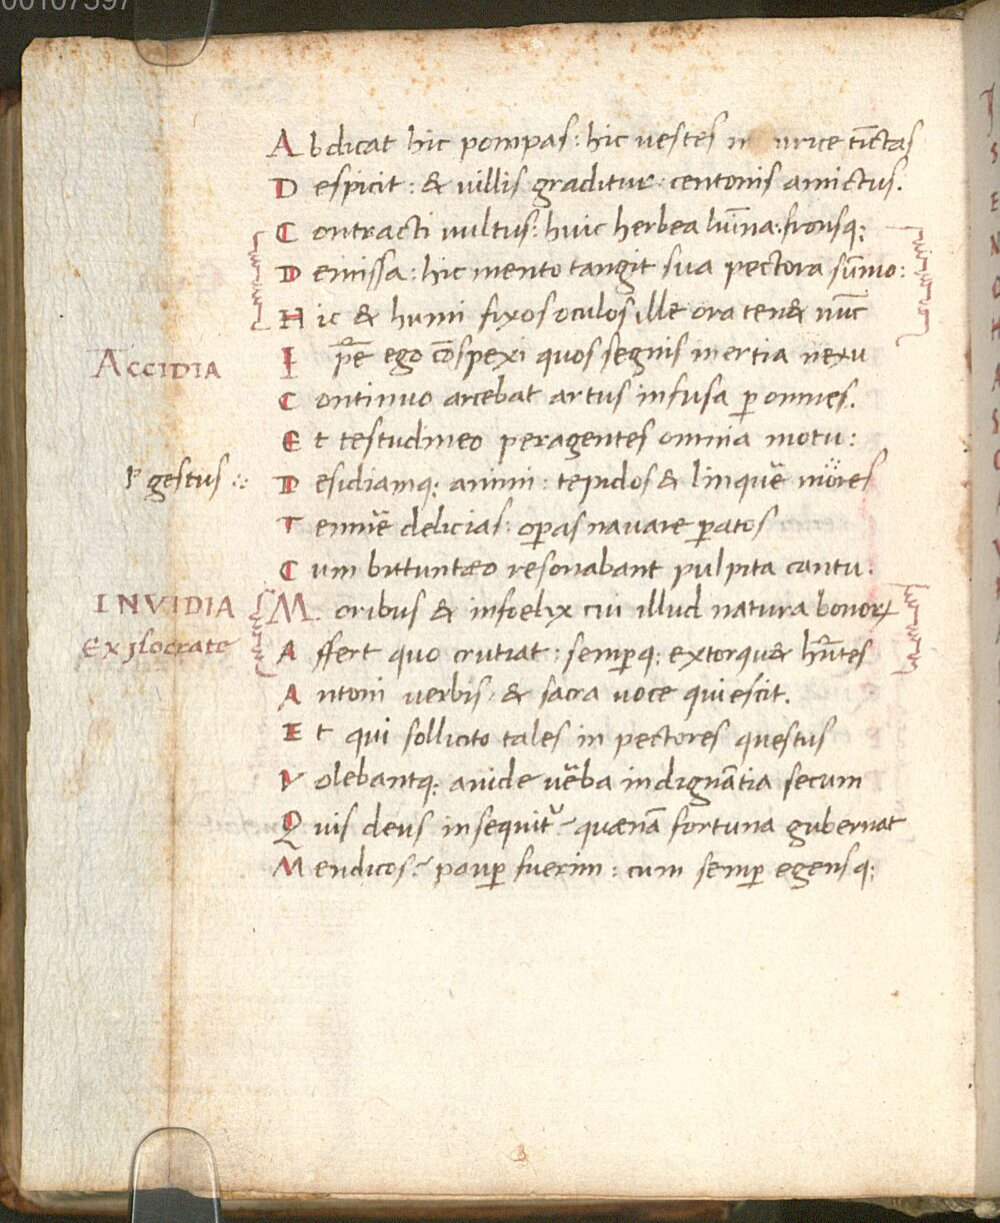 00107597
Abdicat hic pompas: hic uestes tīctas
Despicit: & uillis graditur centonis amictus.
Contracti uultus: huic herbea lūīna: fronsq;
Demissa: hic mento tangit sua pectora sūmo:
Hic & humi fixos oculos ille ora ten& nūc
ACCIDIA
ego cōspexi quos segnis inertia nexu
Continuo arcebat artus infusa ꝑ omnes.
Et testudineo peragentes omnia motu:
gestus
Desidiamq; animi: tepidos & linquē
delicias: oꝑas nauare ꝑatos
Cum resonabant pulpita cantu.
INVIDIA
Moribus & infoelix cui illud natura bonoꝝ
Ex Jsocrate
Affert quo crutiat: semꝑq; extorqu& hūtes
Antoni verbis & sacra uoce quiescit.
Et qui sollicito tales in pectores questus
Volebantq; auide uēba indignātia secum
Quis deus insequit᷑ quænā fortuna gubernat
Mendicos: pauꝑ fuerim: cum semꝑ egensq;